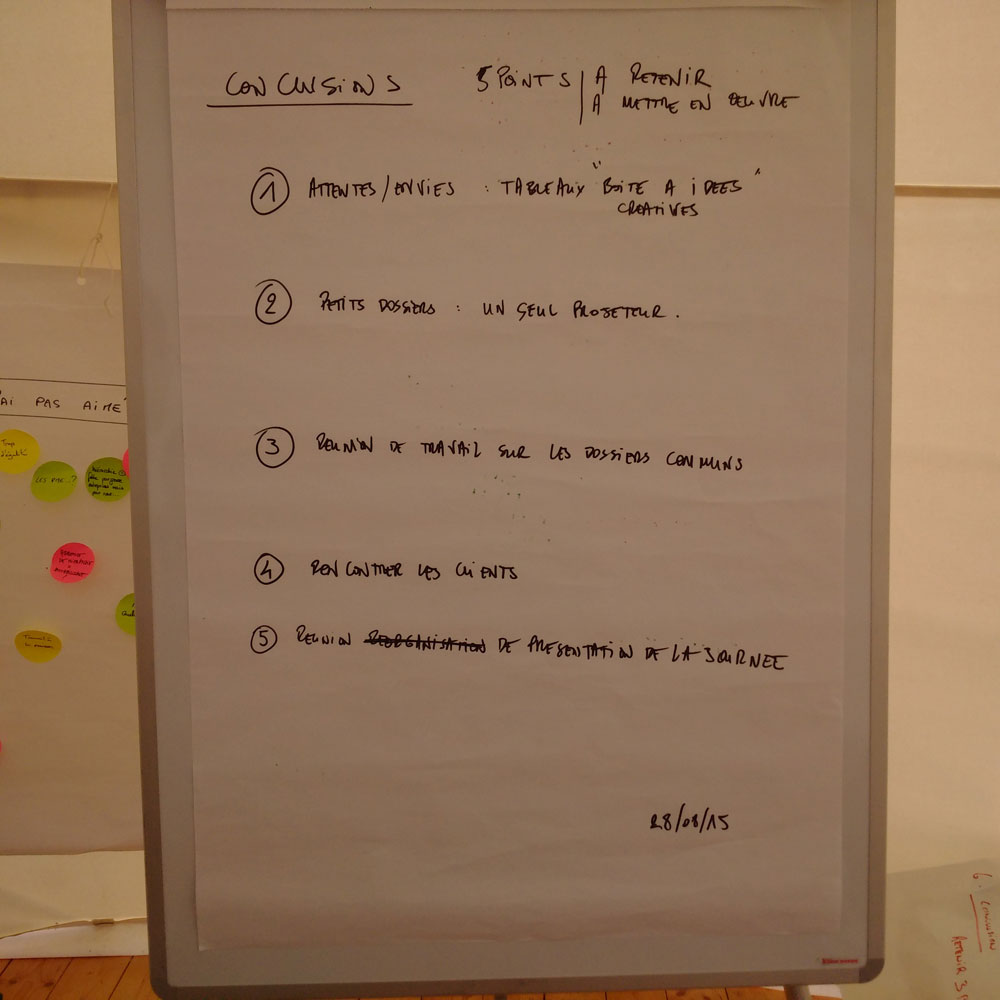 CONCLUSIONS
5 POINTS A RETENIR
A METTRE EN OEUVRE
1 ATTENTES/ENVIES : TABLEAUX "BOITE A IDEES"
CREATIVES
2 PETITS DOSSIERS : UN SEUL PROJETEUR.
3 REUNION DE TRAVAIL SUR LES DOSSIERS COMMUNS
4 RENCONTRER LES CLIENTS
5 REUNION REORGANISATION DE PRESENTATION DE LA JOURNEE
28/08/15
AI PAS AIME
Trop
LES
6. CONCLUSION
RETENIR 3